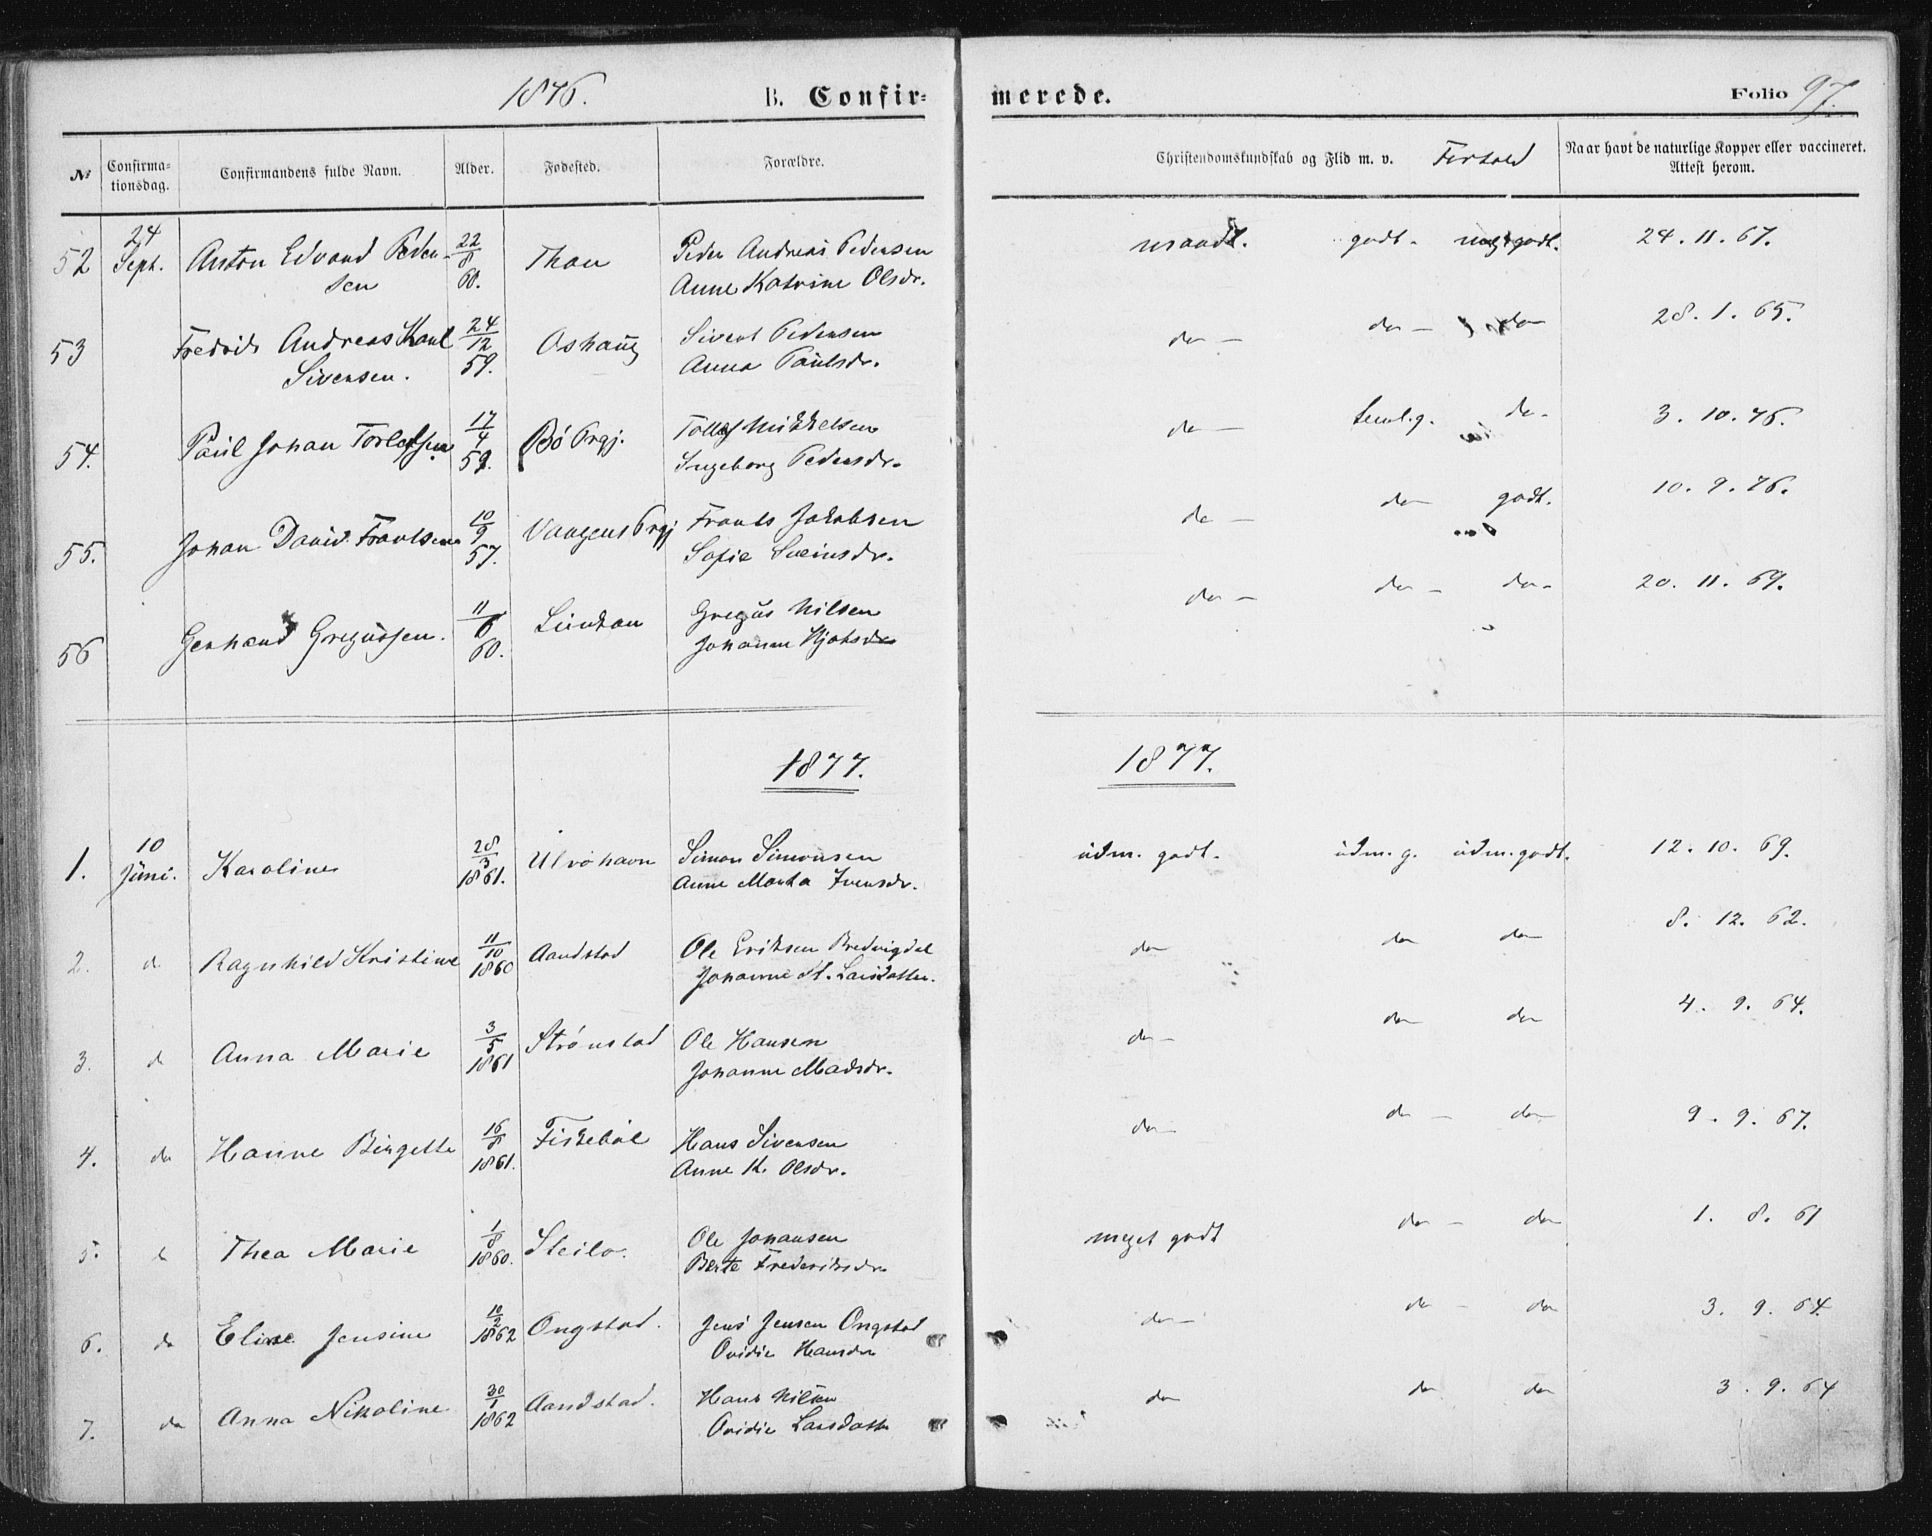 1876. B. Confir- merede. Folio 97.
№ Confirma-tionsdag. Confirmandens fulde Navn. Alder. Fødested. Forældre. Christendomskundskab og Flid m. v. Forhold Naar havt de naturlige Kopper eller vaccineret. Attest herom.
52 24 Sept. Anton Edvard Peder- 22/8 Than Peder Andreas Pedersen maadl. godt. meg. godt. 24. 11. 67.
sen 60. Anne Katrine Olsdr.
53 Fredrik Andreas Karl 24/12 Oshaug Sivert Pedersen do — do — do 28. 1. 65.
Sivensen. 59. Anna Paulsdr.
54. Paul Johan Torlefsen 17/4 Bö Prgj. Tollef Mikkelsen do — temlig. do- 3. 10. 76.
59. Ingeborg Pedersdr.
55. Johan David Frantsen 10/9 Vaagens Prgj Frants Jakobsen do — do godt. 10. 9. 76.
57. Sofie Sveinsdr.
56 Gerhard Gregussen. 11/6 Lundan Gregus Nilsen do — do — do- 20. 11. 69.
60. Johanne
1877. 1877.
1. 10 Juni. Karoline 28/3 Ulvöhavn Simon Simonsen udm. godt. udm. g. udm. godt. 12. 10. 69.
1861. Anne Marta Iversdr.
2. d Ragnhild Kristine 11/10 Aandstad Ole Eriksen Bredvigdal do do do 8. 12. 62.
1860 Johanne M. Larsdatter.
3. d Anna Marie 3/5 Strønstad Ole Hansen do- do do 4. 9. 64.
1861 Johanne Madsdr.
4. do Hanne Birgette 16/8 Fiskeböl Hans Sivensen do- do — do- 9. 9. 67.
1861. Anne K. Olsdr.
5. d Thea Marie 1/8 Steilo. Ole Johansen meget godt do — do 1. 8. 61
1860. Berte Frederiksdr
6. do Elise Jensine 10/2 Ongstad. Jens Jensen Ongstad do- do — do 3. 9. 64.
1862 Ovidie Hansdr
7. do Anna Nikoline 30/1 Aandstad. Hans Nilsen do do do 3. 9. 64
1862 Ovidie Larsdatter